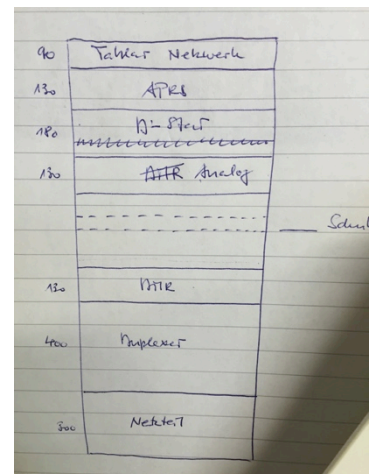 90 Tablar Netzwerk
130 APRS
180 D-Star
130 DMR Analog
Schub
130 DMR
400 Duplexer
300 Netzteil